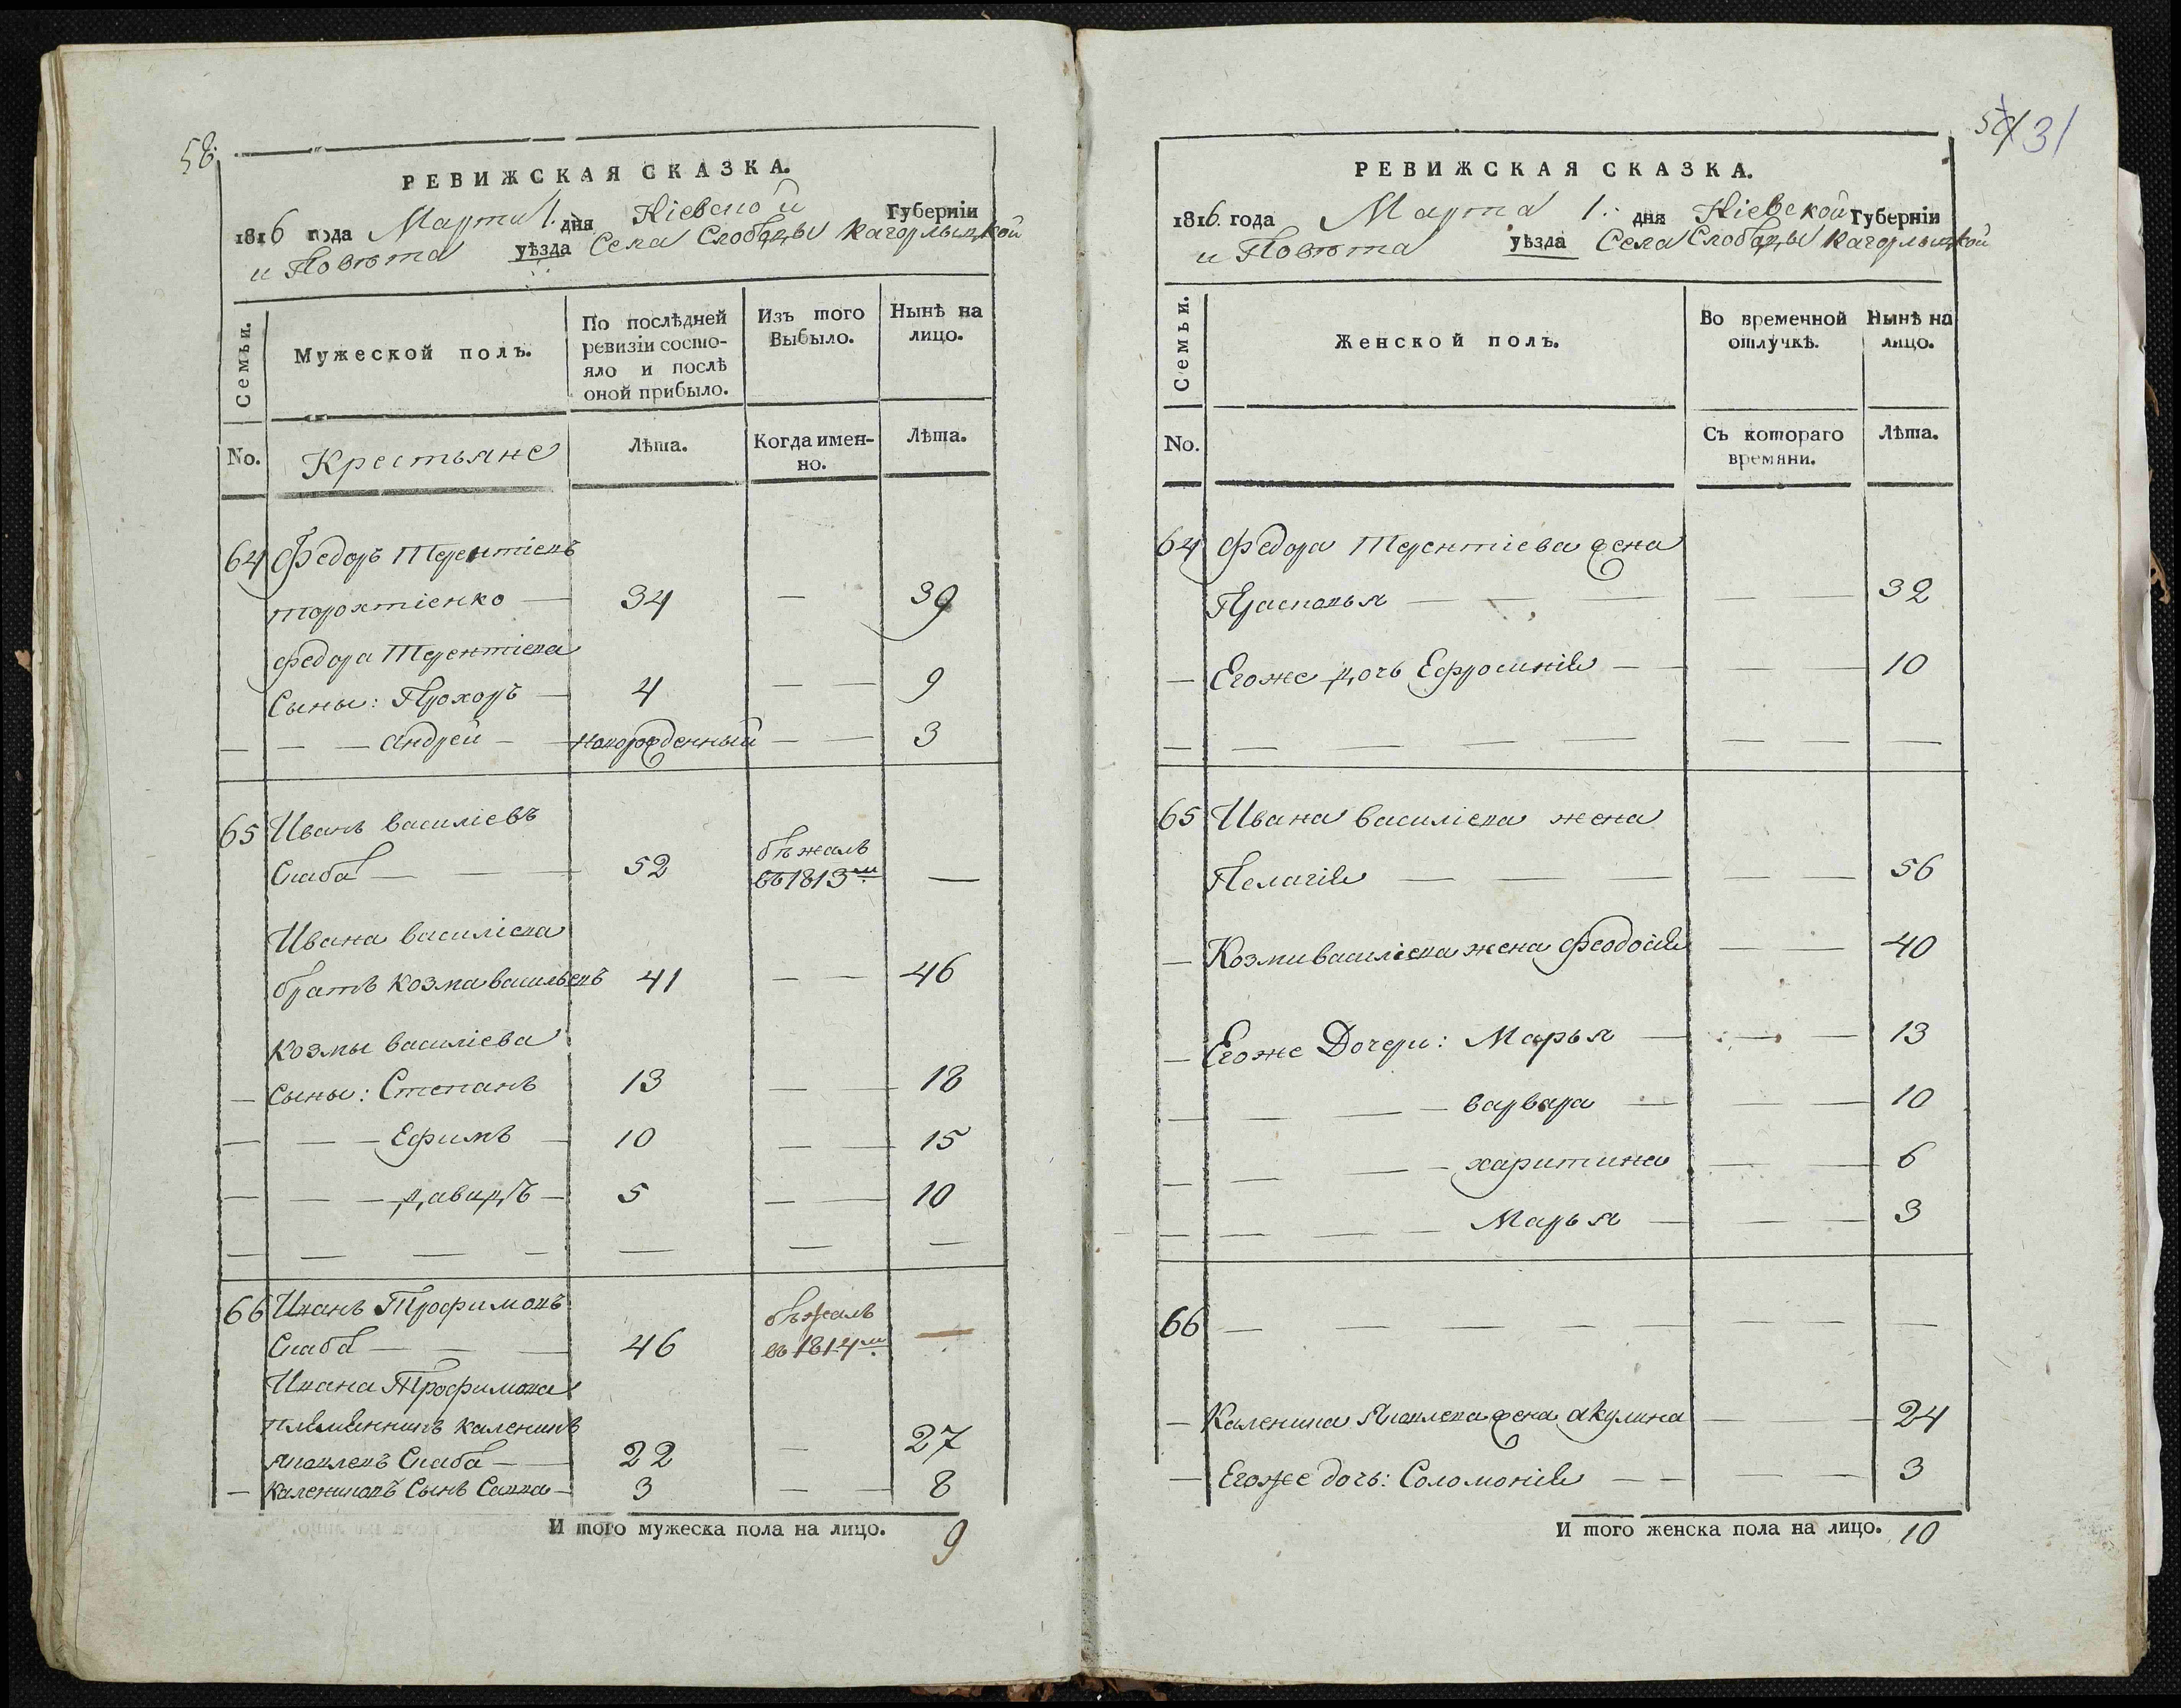 58.
РЕВИЖСКАЯ СКАЗКА.
1816 года Марта 1. дня Кіевской Губерніи
и Повѣта уѣзда Села Слободы Кагорлыцкой
Семьи.
Мужеской полъ.
По послѣдней ревизіи состояло и послѣ оной прибыло.
Изъ того Выбыло.
Нынѣ на лицо.
No.
Крестьяне
Лѣта.
Когда именно.
Лѣта.
64 Федоръ Терентіевъ
торохтіенко — 34 — 39
федора Терентіева
Сыны: Прохоръ — 4 — — 9
— — — андрей — новорожденный — — 3
65 Иванъ василіевъ
Слаба — — — 52 бѣжалъ въ 1813м. —
Ивана василіева
братъ козма васильевъ 41 — — 46
козмы василіева
— сыны: Степанъ 13 — — 18
— — — Ефимъ — 10 — — 15
— — — давидъ — 5 — — 10
— — — — — — —
66 Иванъ Трофимовъ
Слаба — — — 46 бѣжалъ въ 1814м. —
Ивана Трофимова
племенникъ каленикъ
яковлевъ Слаба — — 22 — 27
— калениковъ Сынъ Савва — 3 — — 8
И того мужеска пола на лицо. 9
31
РЕВИЖСКАЯ СКАЗКА.
1816. года Марта 1. дня Кіевской Губерніи
и Повѣта уѣзда Села Слободы Кагорлыцкой
Семьи.
Женской полъ.
Во временной отлучкѣ.
Нынѣ на лицо.
No.
Съ котораго времяни.
Лѣта.
64 Федора Терентіева жена
Прасковья — — — — — 32
— Егоже дочь Ефросинія — — — — 10
— — — — — — — —
65 Ивана василіева жена
Пелагія — — — — — 56
— Козми василіева жена Феодосія — — 40
— Егоже Дочери: Марья — — — 13
— — — — варвара — — — 10
— — — — харитина — — 6
— — — — — Марья — — — 3
66 — — — — — — — —
— Каленика Яковлева жена акулина — — 24
— Егоже дочь: Соломонія — — — — 3
И того женска пола на лицо. 10